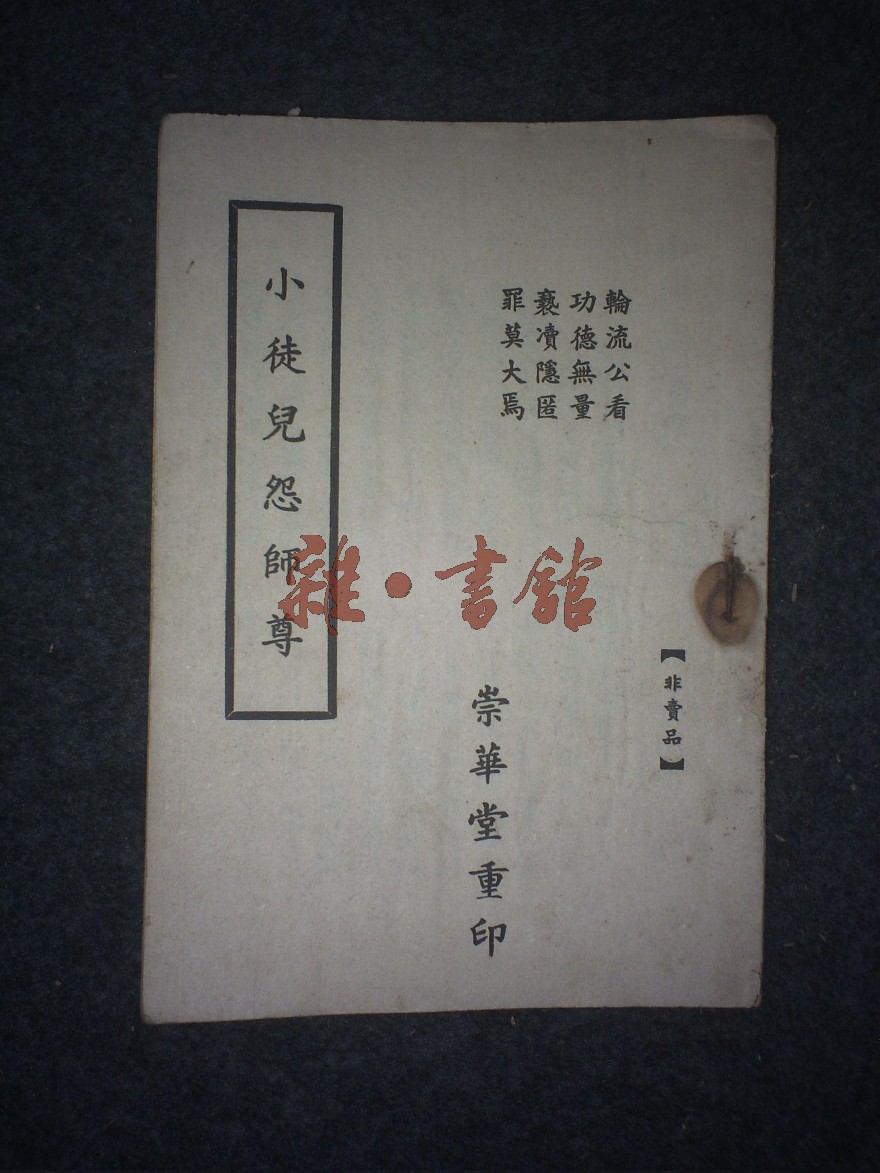 【非賣品】
輪流公看
功德無量
褻瀆隱匿
罪莫大焉
崇華堂重印
小徒兒怨師尊
雜·書館